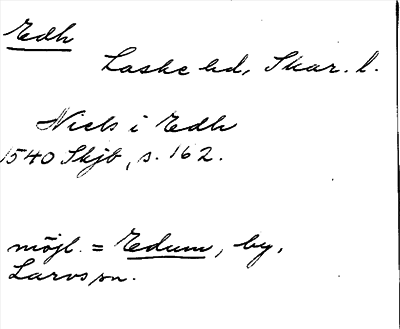 Edh
Laske hd, Skar. l.
Niels i Edh
1540 Skjb, s. 162.
möjl. = Edum, by,
Larvs sn.